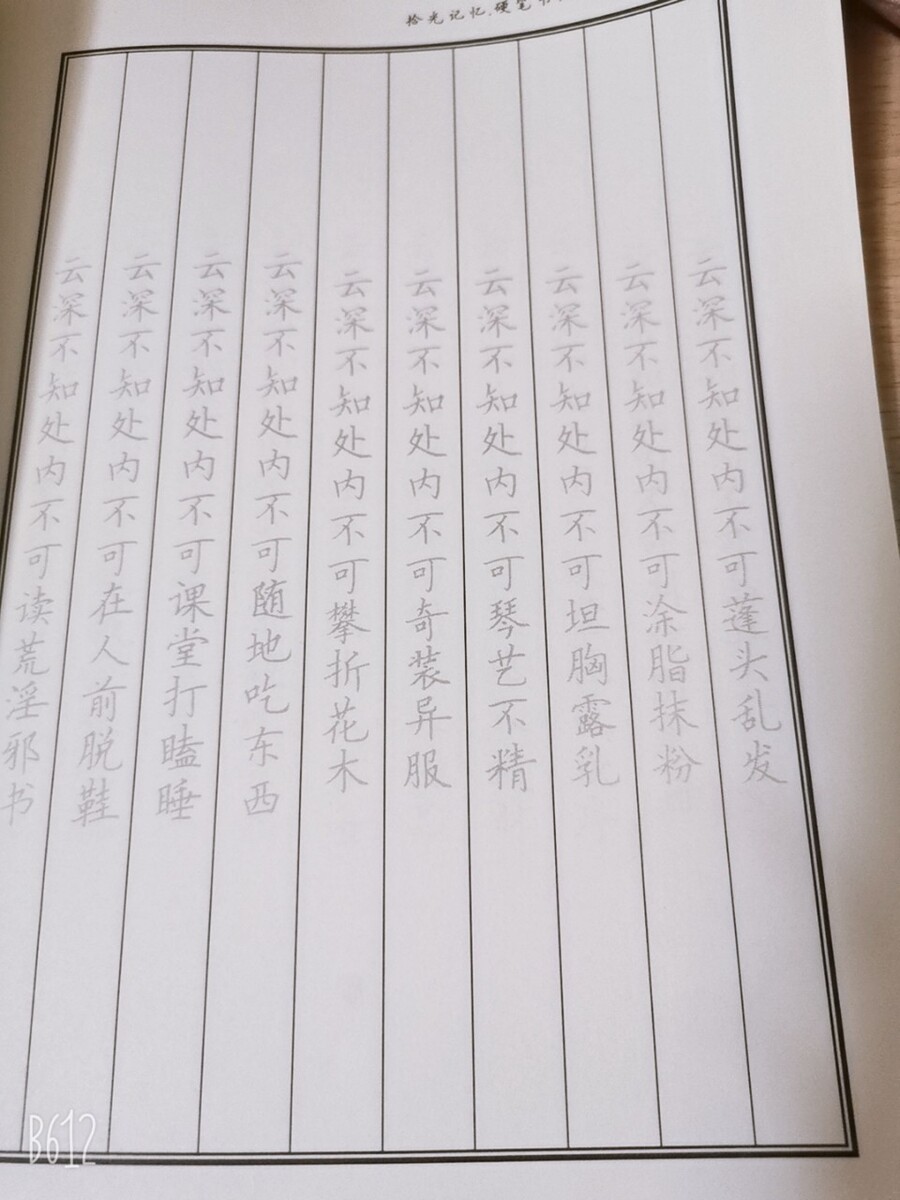 拾光记忆.硬笔书
云深不知处内不可蓬头乱发
云深不知处内不可涂脂抹粉
云深不知处内不可坦胸露乳
云深不知处内不可琴艺不精
云深不知处内不可奇装异服
云深不知处内不可攀折花木
云深不知处内不可随地吃东西
云深不知处内不可课堂打瞌睡
云深不知处内不可在人前脱鞋
云深不知处内不可读荒淫邪书
B612